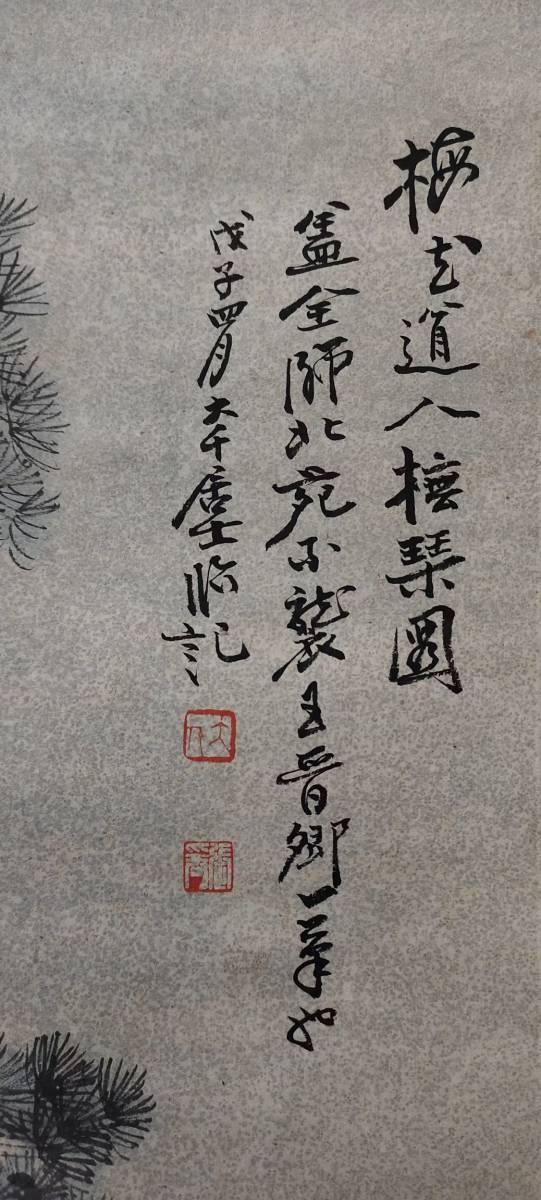 梅花道人橅琴圖
蓋全師北苑不襲王晉卿一筆也
戊子四月大千居士臨記
大千
張爰